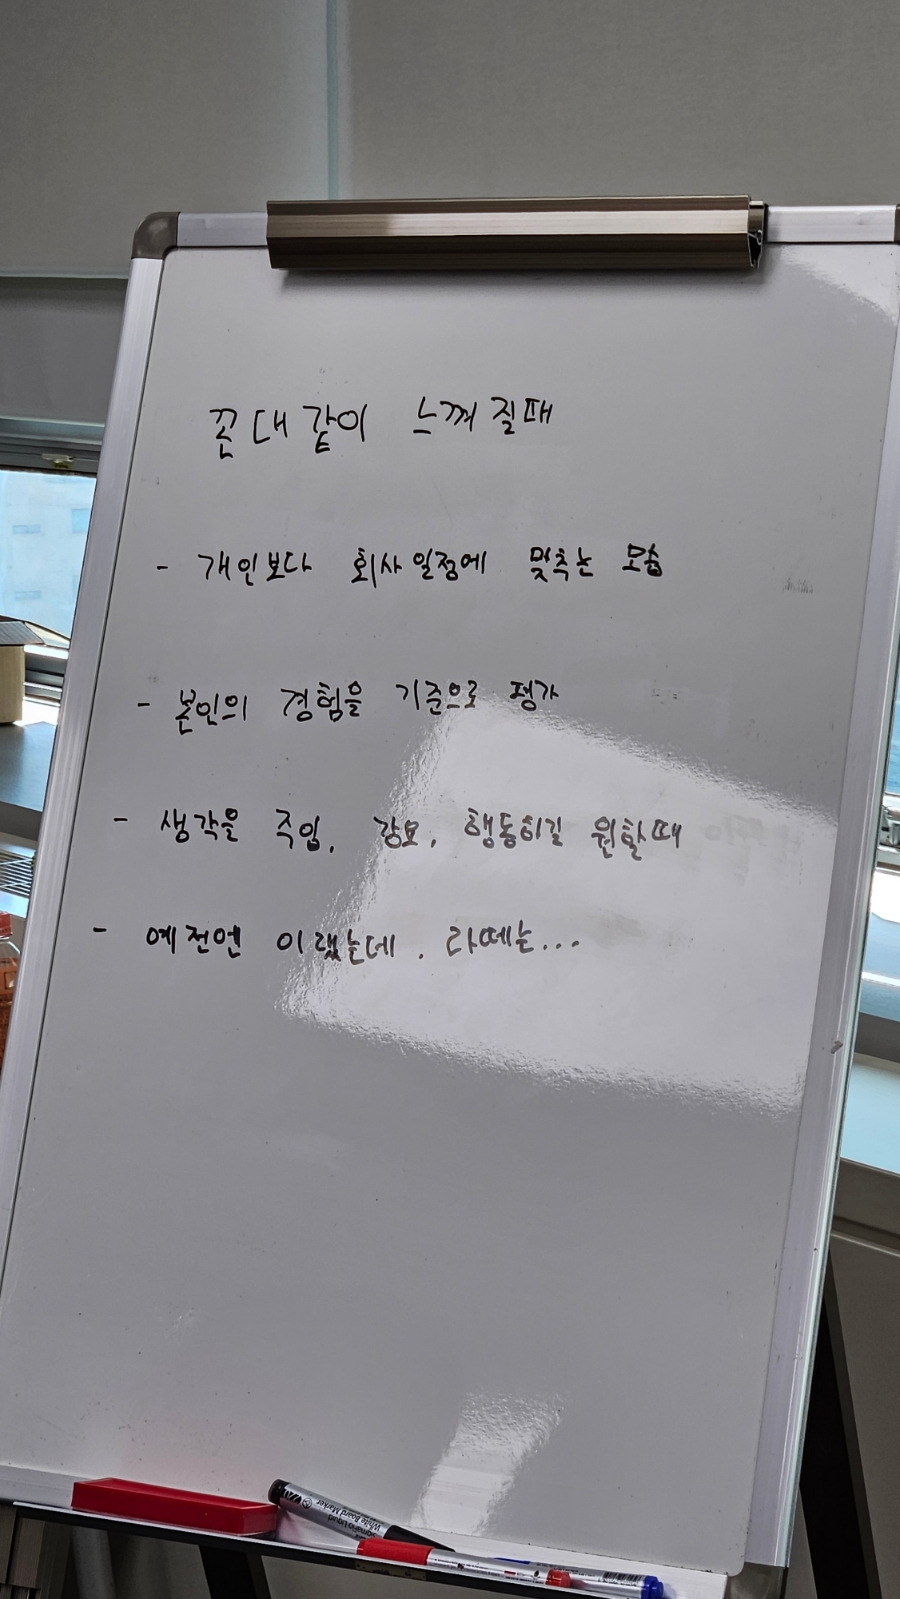 꼰대같이 느껴질때
- 개인보다 회사일정에 맞추는 모습
- 본인의 경험을 기준으로 평가
- 생각을 주입, 강요, 행동하길 원할때
- 예전엔 이랬는데. 라떼는...
White Board Marker